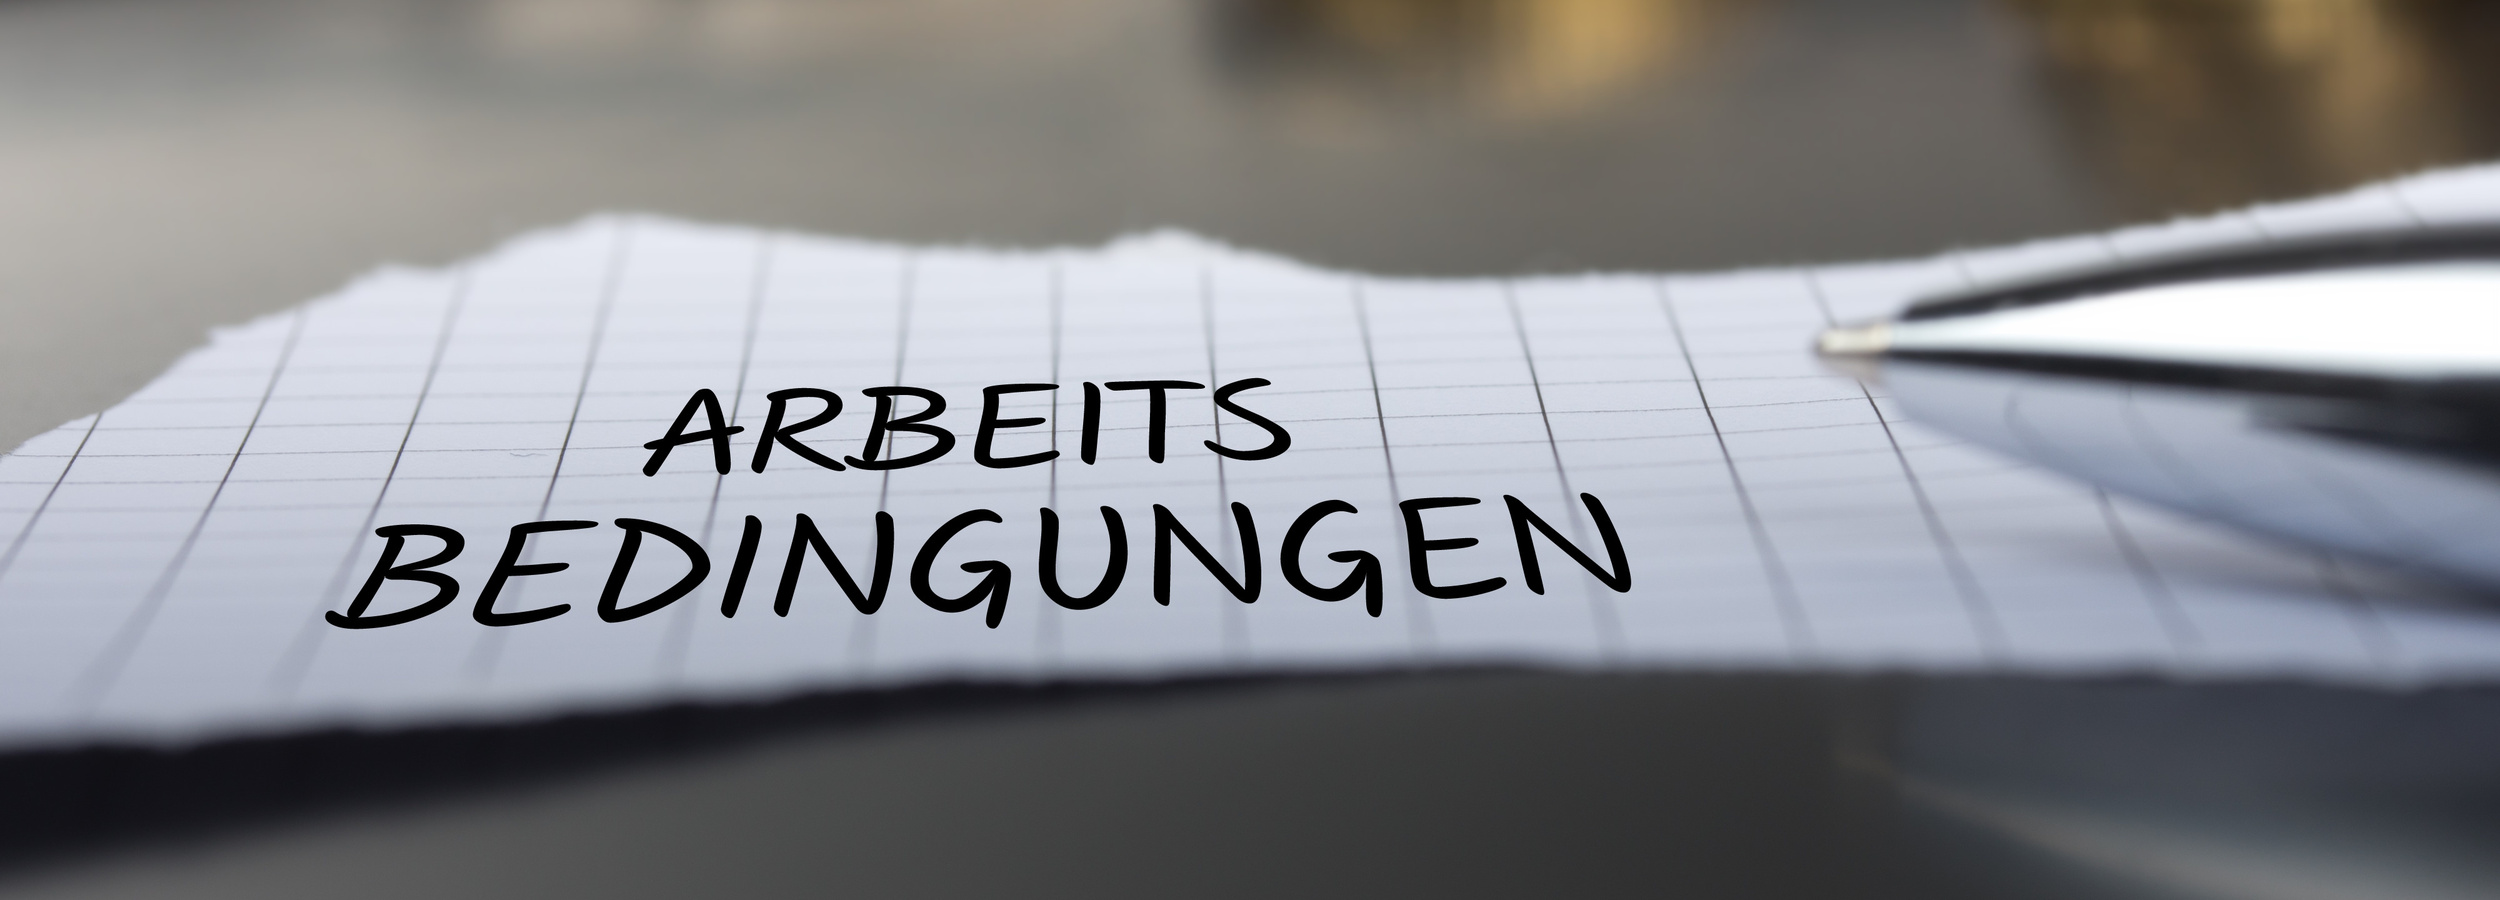 ARBEITS
BEDINGUNGEN